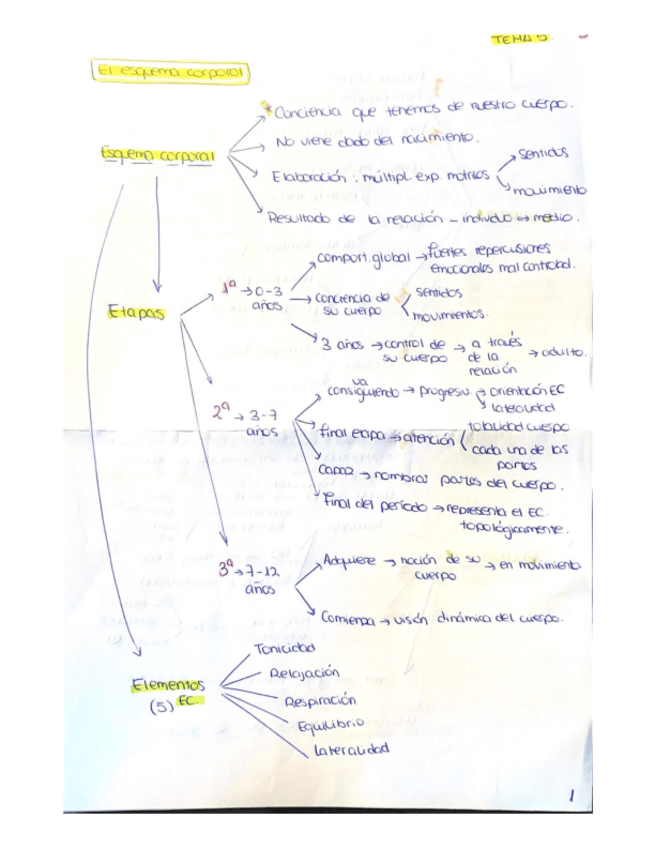 TEMA 5.
El esquema corporal
* Conciencia que tenemos de nuestro cuerpo.
Esquema corporal
No viene dado del nacimiento.
Elaboración : múltipl. exp. motrices
sentidos
movimiento
Resultado de la relación - individuo ↔ medio.
Etapas
1ª → 0-3
años
comport. global → fuertes repercusiones
emocionales mal controlad.
conciencia de
su cuerpo
sentidos
movimientos.
3 años → control de
su cuerpo
→ a través
de la
relación
→ adulto.
2ª → 3-7
años
va
consiguiendo → progresiv.
→ orientación EC
lateralidad
final etapa → atención
totalidad cuerpo
cada una de las
partes
capaz → nombrar partes del cuerpo.
final del período → representa el EC.
topológicamente.
3ª → 7-12
años
Adquiere → noción de su
cuerpo
→ en movimiento
Comienza → visión dinámica del cuerpo.
Elementos
(5) EC.
Tonicidad
Relajación
Respiración
Equilibrio
Lateralidad
1